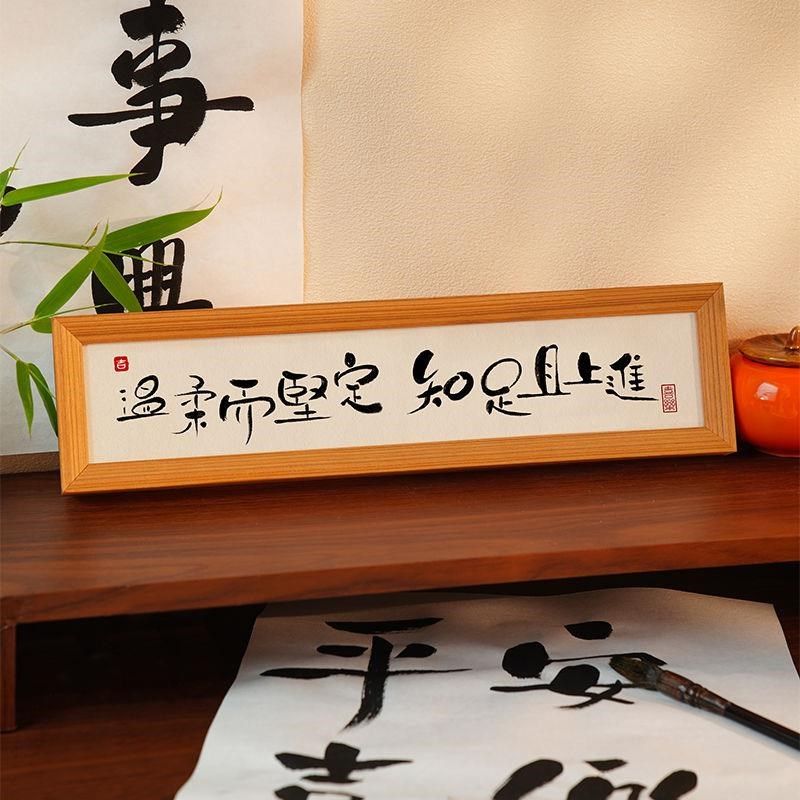 事
興
吉
溫柔而堅定 知足且上進
平安
吉